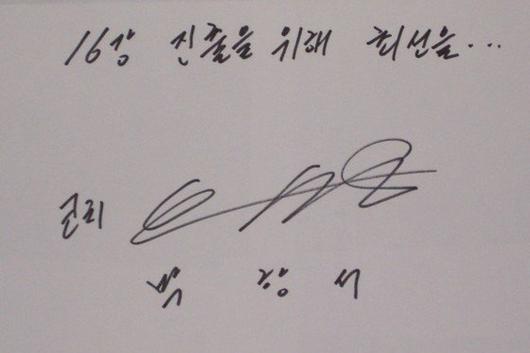 16강 진출을 위해 최선을...
코치
박 항 서